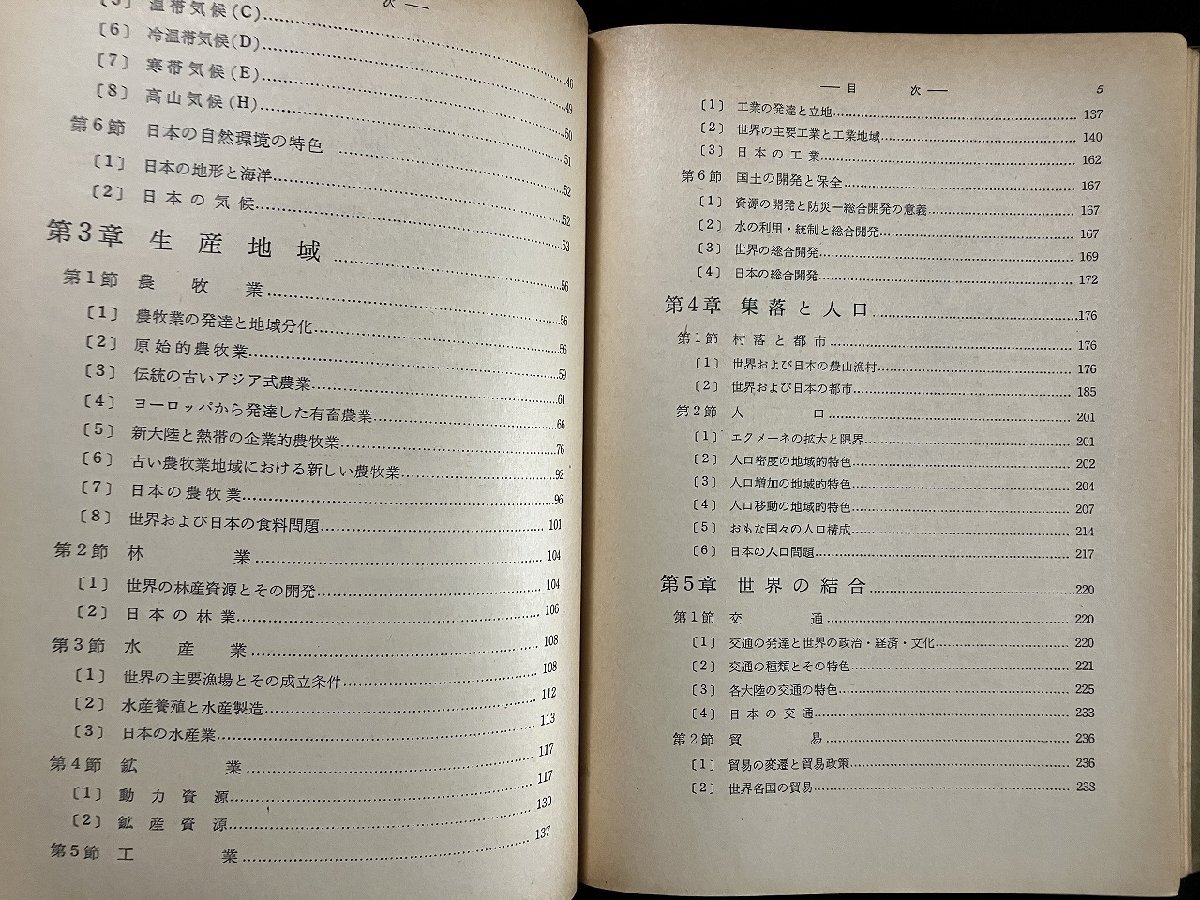 次——
〔5〕 温帯気候(C)
〔6〕 冷温帯気候(D) 46
〔7〕 寒帯気候(E) 49
〔8〕 高山気候(H) 50
第6節 日本の自然環境の特色 51
〔1〕 日本の地形と海洋 52
〔2〕 日本の気候 52
53
第3章 生産地域 56
第1節 農牧業 56
〔1〕 農牧業の発達と地域分化 56
〔2〕 原始的農牧業 59
〔3〕 伝統の古いアジア式農業 61
〔4〕 ヨーロッパから発達した有畜農業 66
〔5〕 新大陸と熱帯の企業的農牧業 76
〔6〕 古い農牧業地域における新しい農牧業 92
〔7〕 日本の農牧業 96
〔8〕 世界および日本の食料問題 101
第2節 林業 104
〔1〕 世界の林産資源とその開発 104
〔2〕 日本の林業 106
第3節 水産業 108
〔1〕 世界の主要漁場とその成立条件 108
〔2〕 水産養殖と水産製造 112
〔3〕 日本の水産業 113
第4節 鉱業 117
〔1〕 動力資源 117
〔2〕 鉱産資源 130
第5節 工業 137
——目次—— 5
〔1〕 工業の発達と立地 137
〔2〕 世界の主要工業と工業地域 140
〔3〕 日本の工業 162
第6節 国土の開発と保全 167
〔1〕 資源の開発と防災―総合開発の意義 167
〔2〕 水の利用・統制と総合開発 167
〔3〕 世界の総合開発 169
〔4〕 日本の総合開発 172
第4章 集落と人口 176
第1節 村落と都市 176
〔1〕 世界および日本の農山漁村 176
〔2〕 世界および日本の都市 185
第2節 人口 201
〔1〕 エクメーネの拡大と限界 201
〔2〕 人口密度の地域的特色 202
〔3〕 人口増加の地域的特色 204
〔4〕 人口移動の地域的特色 207
〔5〕 おもな国々の人口構成 214
〔6〕 日本の人口問題 217
第5章 世界の結合 220
第1節 交通 220
〔1〕 交通の発達と世界の政治・経済・文化 220
〔2〕 交通の種類とその特色 221
〔3〕 各大陸の交通の特色 225
〔4〕 日本の交通 233
第2節 貿易 236
〔1〕 貿易の変遷と貿易政策 236
〔2〕 世界各国の貿易 238